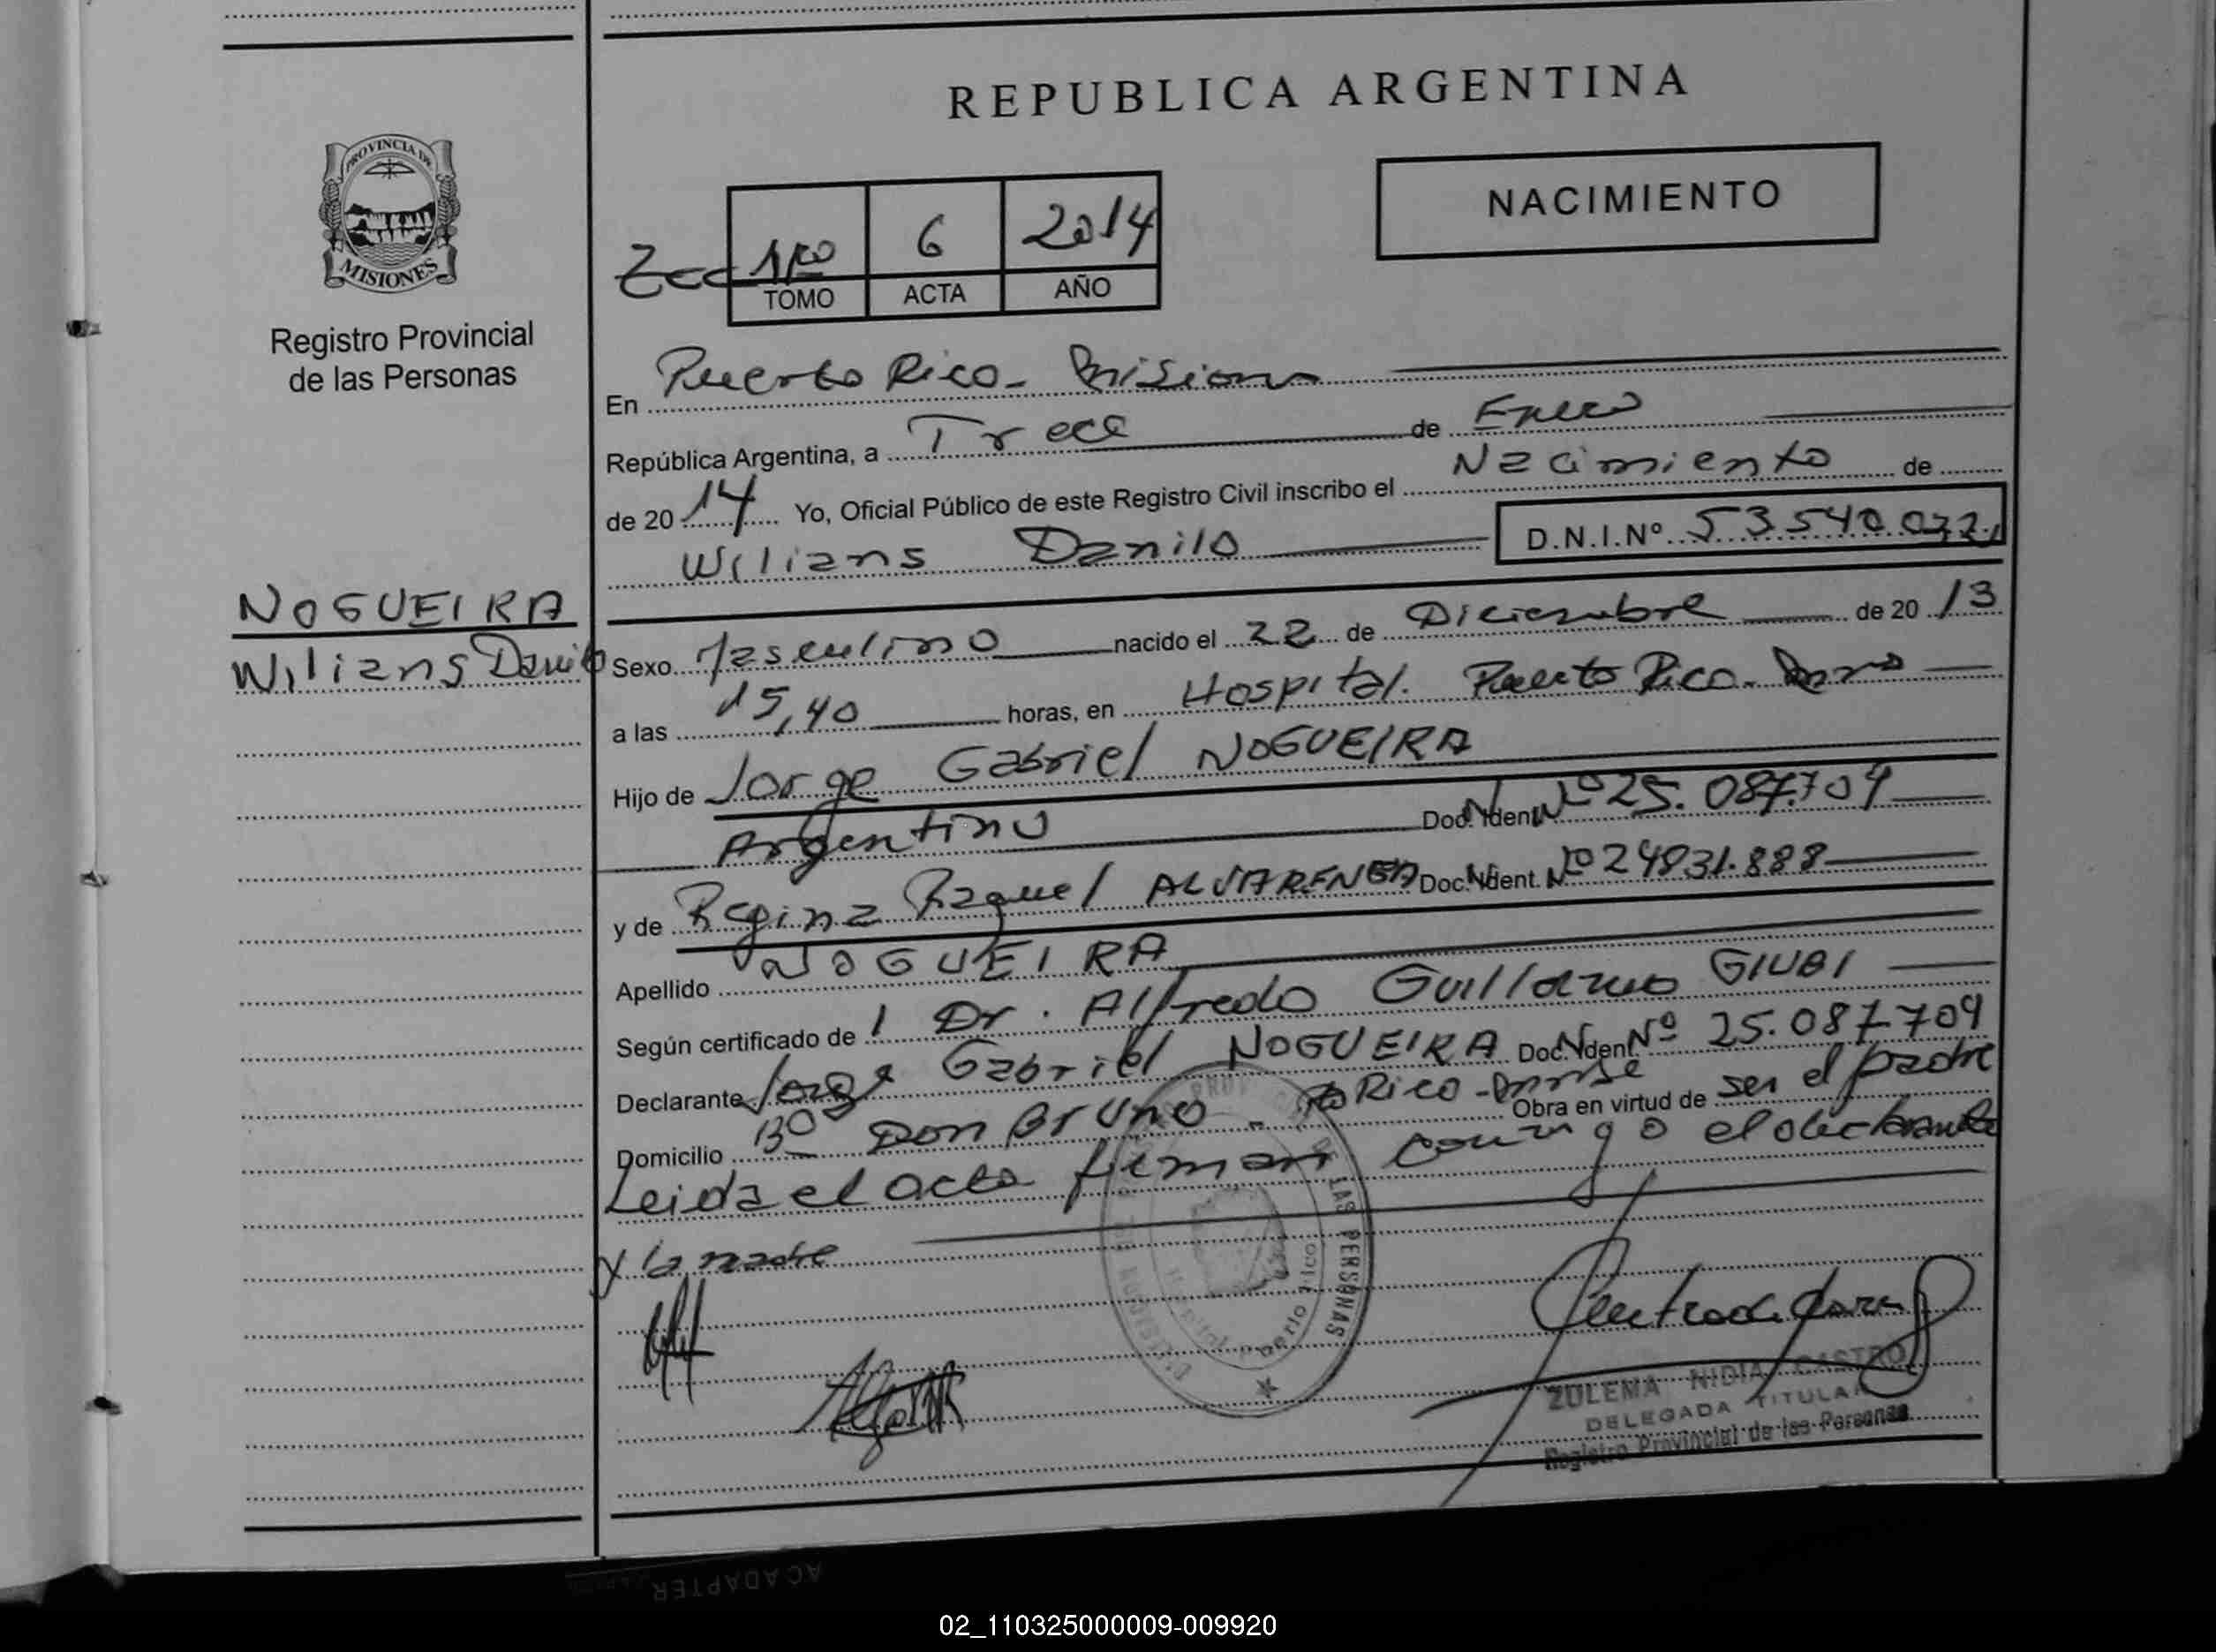 REPUBLICA ARGENTINA
PROVINCIA DE
MISIONES
Registro Provincial
de las Personas
NACIMIENTO
1ro 6 2014
TOMO ACTA AÑO
En Puerto Rico - Misiones
República Argentina, a Trece de Enero
de 2014 Yo, Oficial Público de este Registro Civil inscribo el Nacimiento de
Wilians Danilo D.N.I.Nº 53.540.072
NOGUEIRA
Wilians Danilo
Sexo Masculino nacido el 22 de Diciembre de 2013
a las 15,40 horas, en Hospital. Puerto Rico.
Hijo de Jorge Gabriel NOGUEIRA
Argentino Doc. Ident. Nº 25.087.709
y de Regina Raquel ALVARENGA Doc. Ident. Nº 24831.888
Apellido NOGUEIRA
Según certificado de l Dr. Alfredo Guillermo GIUBI
Declarante Jorge Gabriel NOGUEIRA Doc. Ident. Nº 25.087.709
Domicilio Bº Don Bruno - Pto Rico - Obra en virtud de ser el padre
Leida el acta firman conmigo el declarante
y la madre
LAS PERSONAS
ZULEMA NIDIA CASTRO
DELEGADA TITULAR
Registro Provincial de las Personas
ACADAPTER
02_110325000009-009920